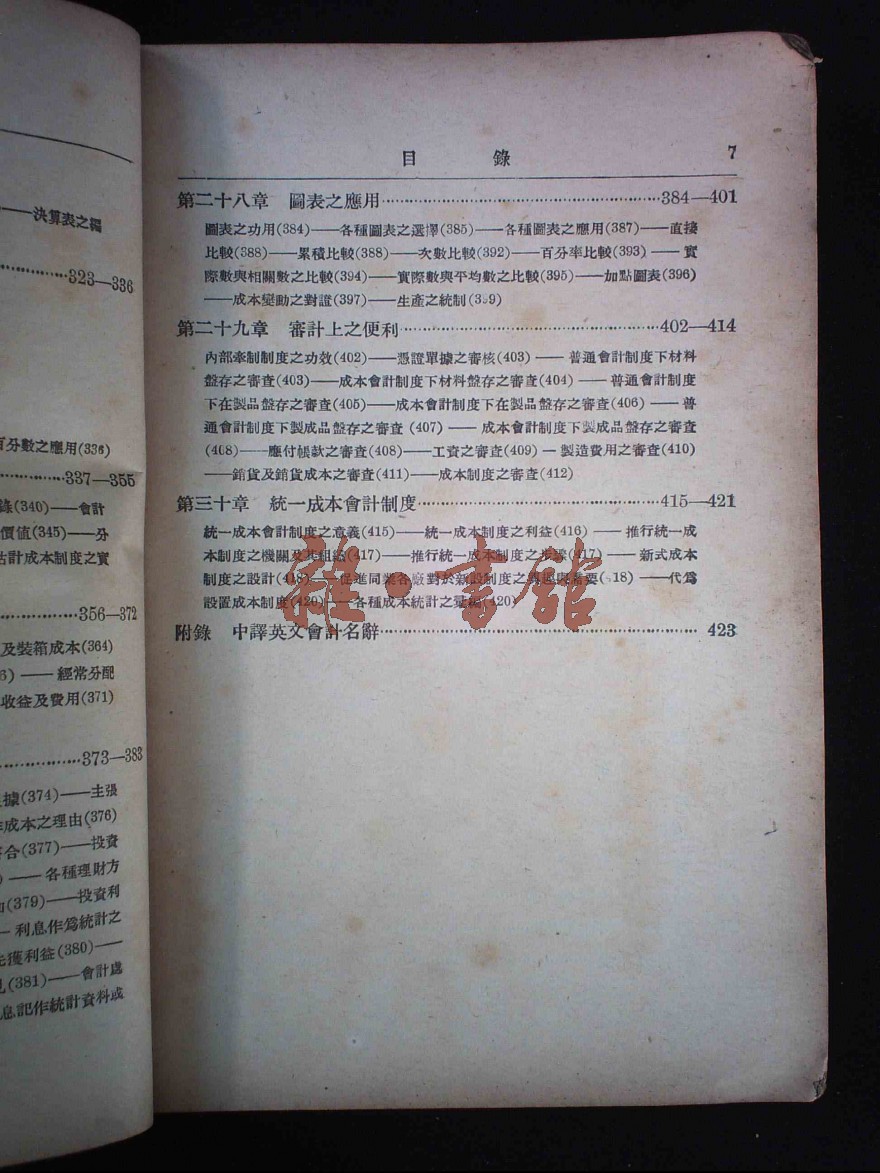 ——決算表之編
323—336
百分數之應用(336)
337—355
錄(340)——會計
價值(345)——分
估計成本制度之實
356—372
及裝箱成本(364)
6)——經常分配
收益及費用(371)
373—383
據(374)——主張
成本之理由(376)
合(377)——投資
)——各種理財方
(379)——投資利
—利息作爲統計之
先獲利益(380)——
(381)——會計處
息記作統計資料或
目 錄 7
第二十八章 圖表之應用……384—401
圖表之功用(384)——各種圖表之選擇(385)——各種圖表之應用(387)——直接
比較(388)——累積比較(388)——次數比較(392)——百分率比較(393)——實
際數與相關數之比較(394)——實際數與平均數之比較(395)——加點圖表(396)
——成本變動之對證(397)——生產之統制(399)
第二十九章 審計上之便利……402—414
內部牽制制度之功效(402)——憑證單據之審核(403)——普通會計制度下材料
盤存之審查(403)——成本會計制度下材料盤存之審查(404)——普通會計制度
下在製品盤存之審查(405)——成本會計制度下在製品盤存之審查(406)——普
通會計制度下製成品盤存之審查(407)——成本會計制度下製成品盤存之審查
(408)——應付帳款之審查(408)——工資之審查(409)—製造費用之審查(410)
——銷貨及銷貨成本之審查(411)——成本制度之審查(412)
第三十章 統一成本會計制度……415—421
統一成本會計制度之意義(415)——統一成本制度之利益(416)——推行統一成
本制度之機關及其組織(417)——推行統一成本制度之步驟(417)——新式成本
制度之設計(418)——促進同業各廠對於新設制度之興趣與需要(418)——代爲
設置成本制度(420)——各種成本統計之彙編(420)
附錄 中譯英文會計名辭……423
雜·書館